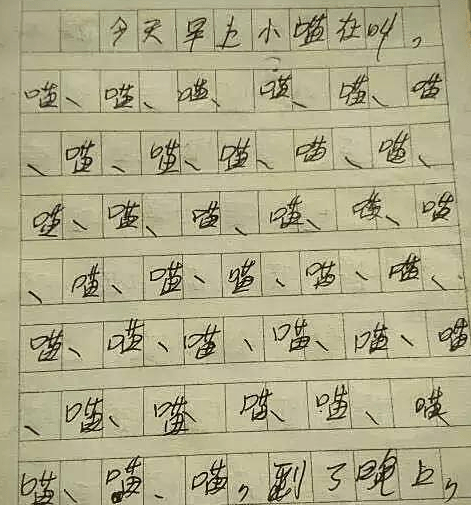 今天早上小喵在叫，
喵、喵、喵、喵、喵、喵
、喵、喵、喵、喵、喵、
喵、喵、喵、喵、喵、喵
、喵、喵、喵、喵、喵、
喵、喵、喵、喵、喵、喵
、喵、喵、喵、喵、喵
喵、喵、喵，到了晚上，